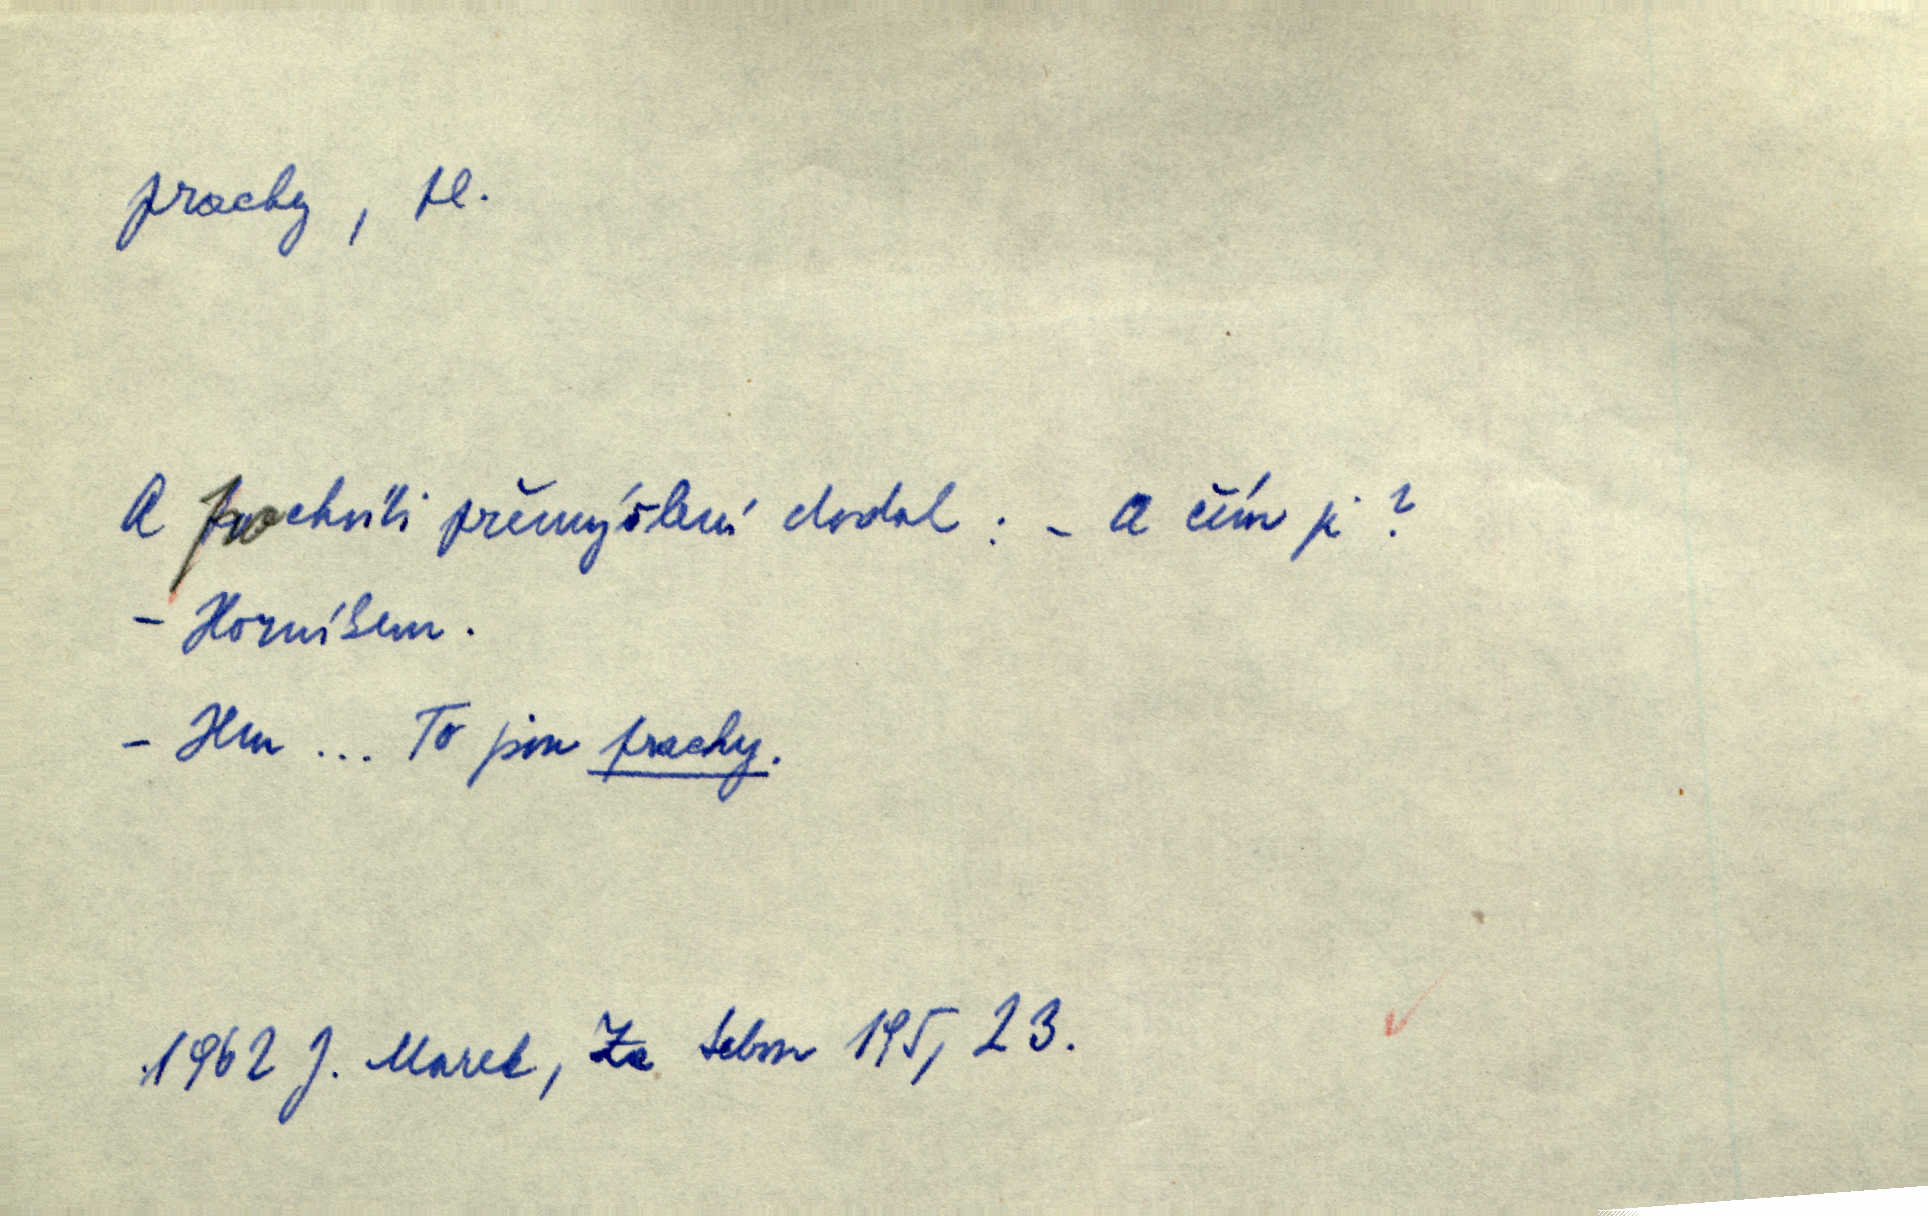 prachy, pl.
A po chvíli přemýšlení dodal: - A čím je?
- Horníkem.
- Hm ... To jsou prachy.
1962 J. Marek, Za Tebou 195, 23.